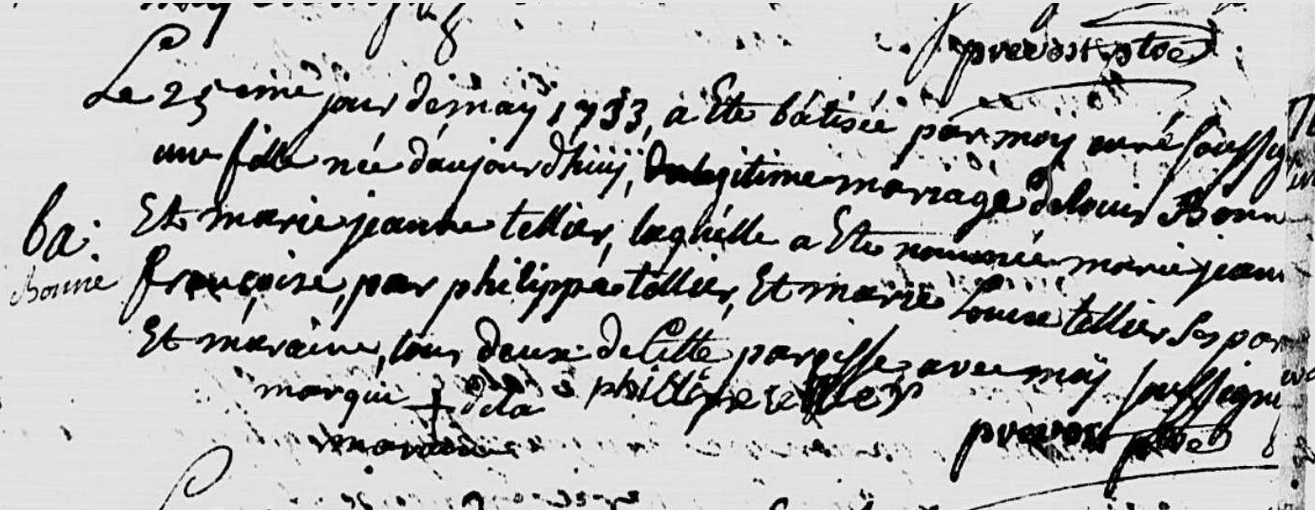 prevost ptre
Le 25 ime jour de maÿ 1733, a Ete bâtisée par moÿ curé soussig
une fille née d'aujourdhuÿ, du legitime mariage de louis Bonn
ba. Et marie jeanne tellier, laquélle a Ete nommée marie jean
Bonnie françoise, par philippe tellier, Et marie Louise tellier ses par
Et maraine, tous deux de Cette paroisse, avec moÿ soussigné
marque de la philippe tellier
maraine prevost ptre